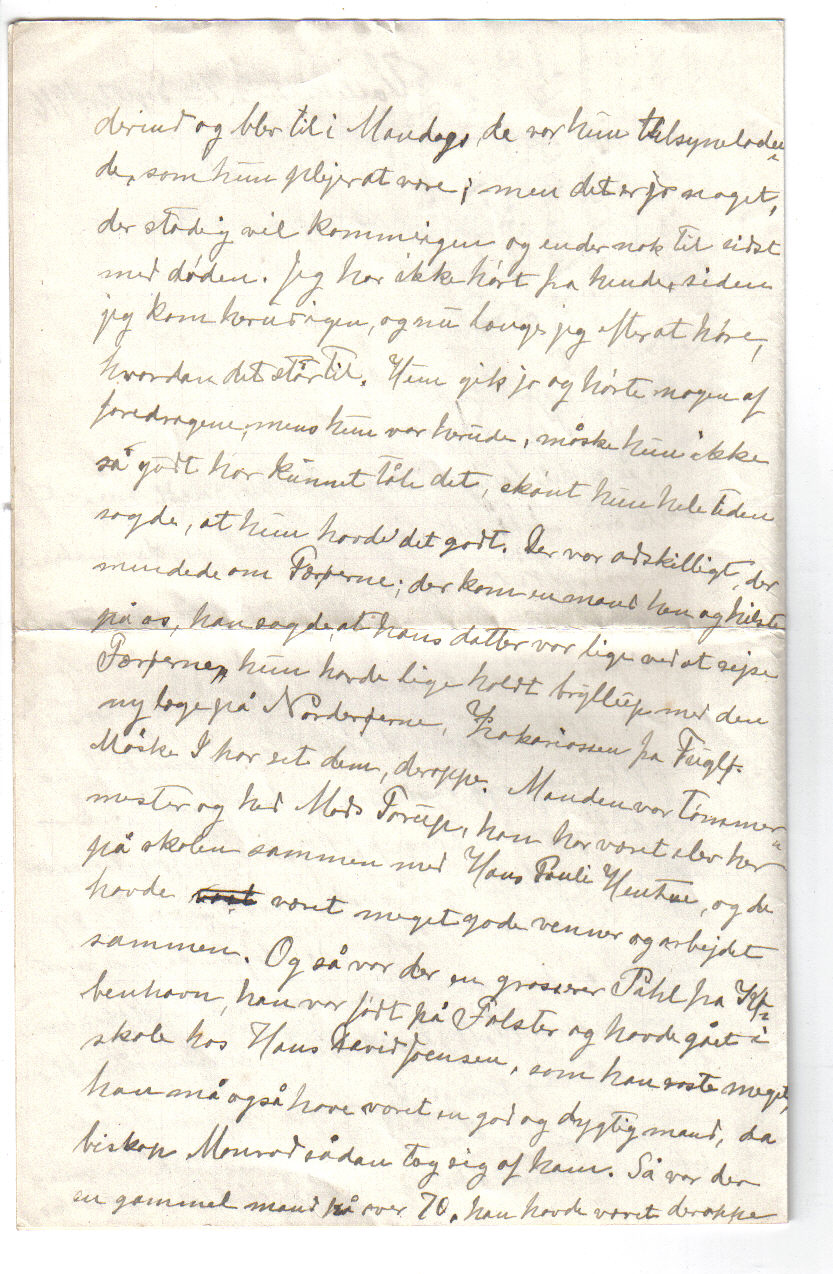 derind og blev til i Mandags, da var hun tilsyneladen=
de, som hun plejer at være; men det er jo noget,
der stadig vil komme igen og ender nok til sidst
med døden. Jeg har ikke hørt fra hende, siden
jeg kom herud igen, og nu længes jeg efter at høre,
hvordan det står til. Hun gik jo og hørte nogen af
foredragene, mens hun var herude, måske hun ikke
så godt har kunnet tåle det, skønt hun hele tiden
sagde, at hun havde det godt. Der var adskilligt, der
mindede om Færøerne; der kom en mand hen og hilste
på os, han sagde, at hans datter var lige ved at rejse
Færøerne, hun havde lige holdt bryllup med den
ny læge på Norderøerne, Zakariassen fra Fuglø.
Måske I har set dem, deroppe. Manden var tømmer=
mester og hed Mads Torup, han har været elev her
på skolen sammen med Hans Pauli, og de
havde været meget gode venner og arbejdet
sammen. Og så var der en grosserer Pahl fra Kø=
benhavn, han var født på Falster og havde gået i
skole hos Hans David Joensen, som han roste meget,
han må også have været en god og dygtig mand, da
biskop Monrad sådan tog sig af ham. Så var der
en gammel mand på over 70, han havde været deroppe